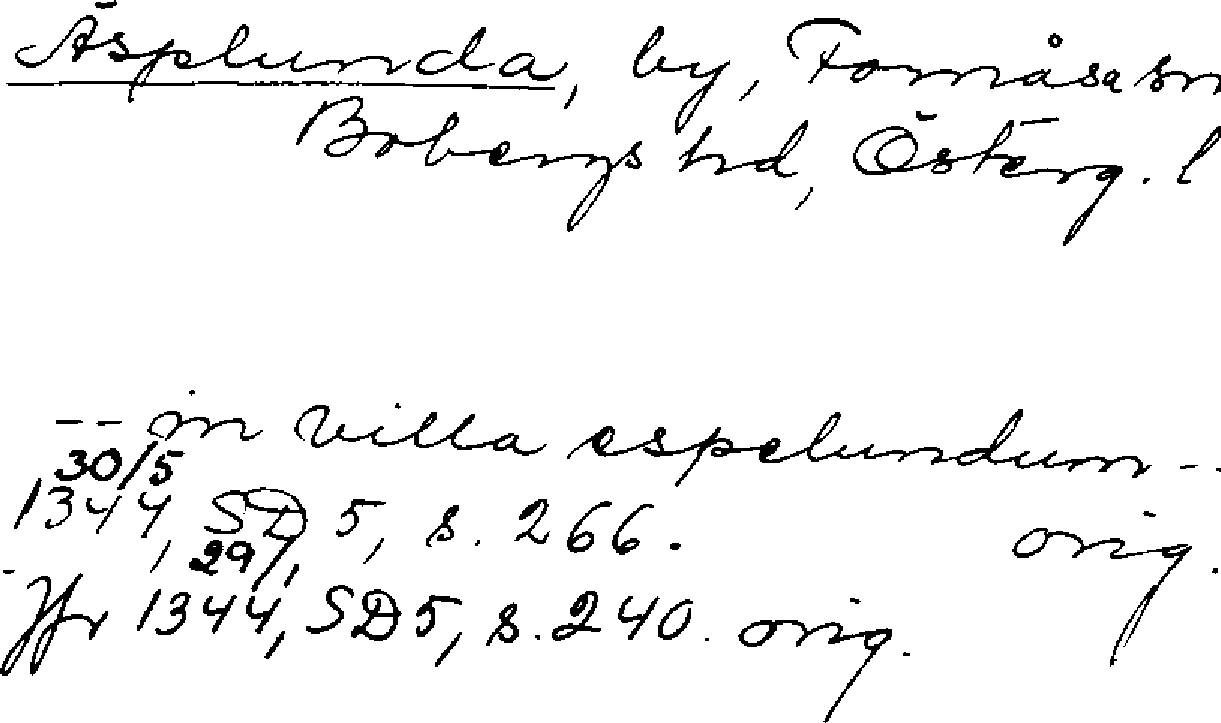 Äsplunda, by, Fornåsa sn
Bobergs hd, Österg. l
-- in villa espelundum --
30/5
1344, SD 5, s. 266. orig.
29/1
Jfr 1344, SD 5, s. 240. orig.